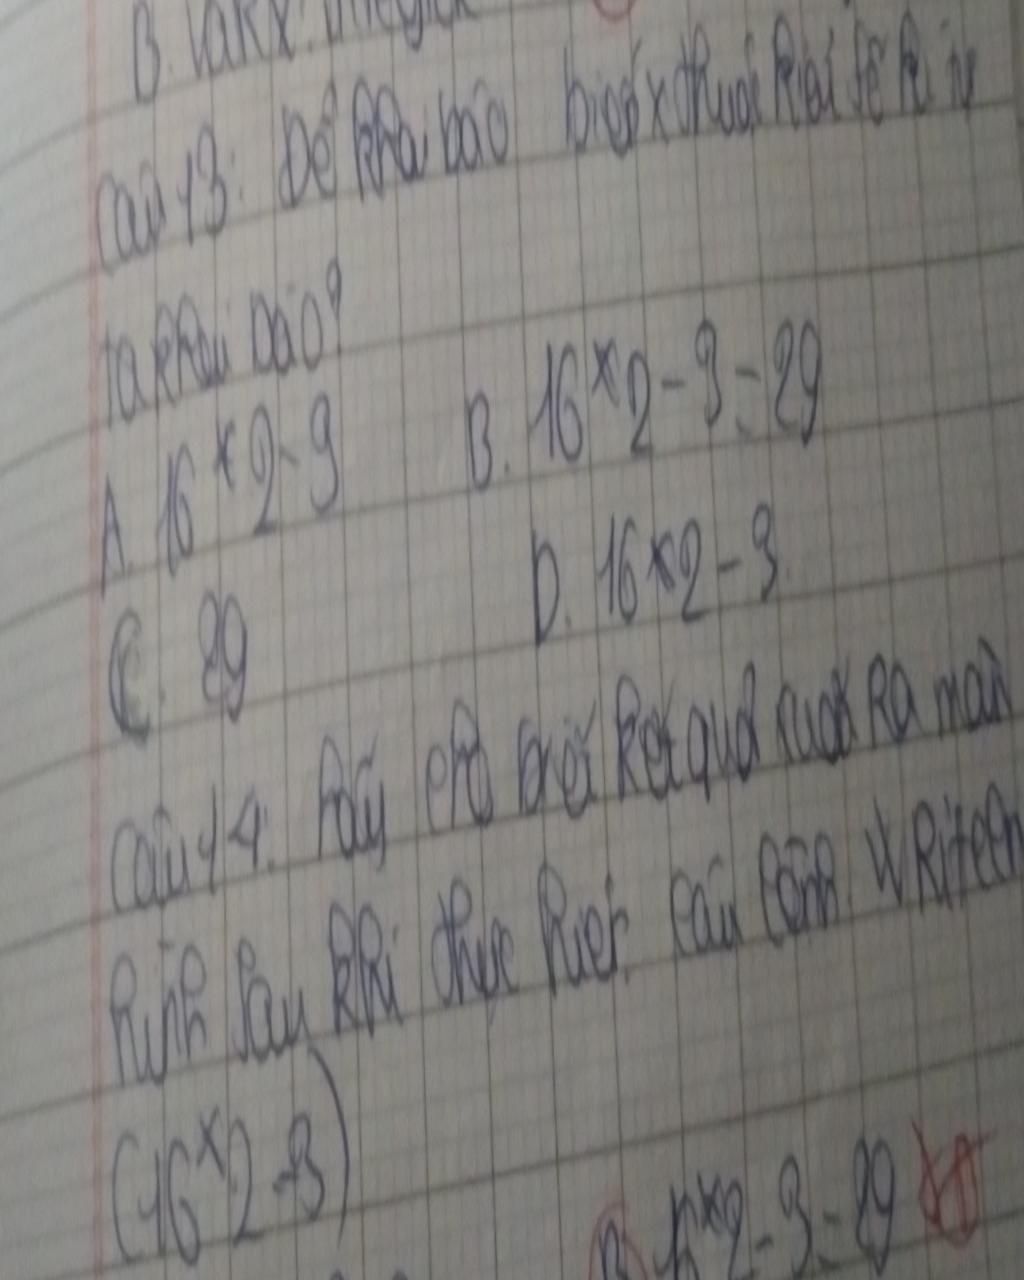 B. Var x:
Câu 13: Để khai báo biến x thuộc kiểu
ta khai báo?
A. 16*2-3 B. 16*2-3=29
C. 29 D. 16*2-3
Câu 14. Hãy cho biết kết quả xuất ra màn
hình sau khi thực hiện câu lệnh Writeln
(16*2-3)
B. 16*2-3=29